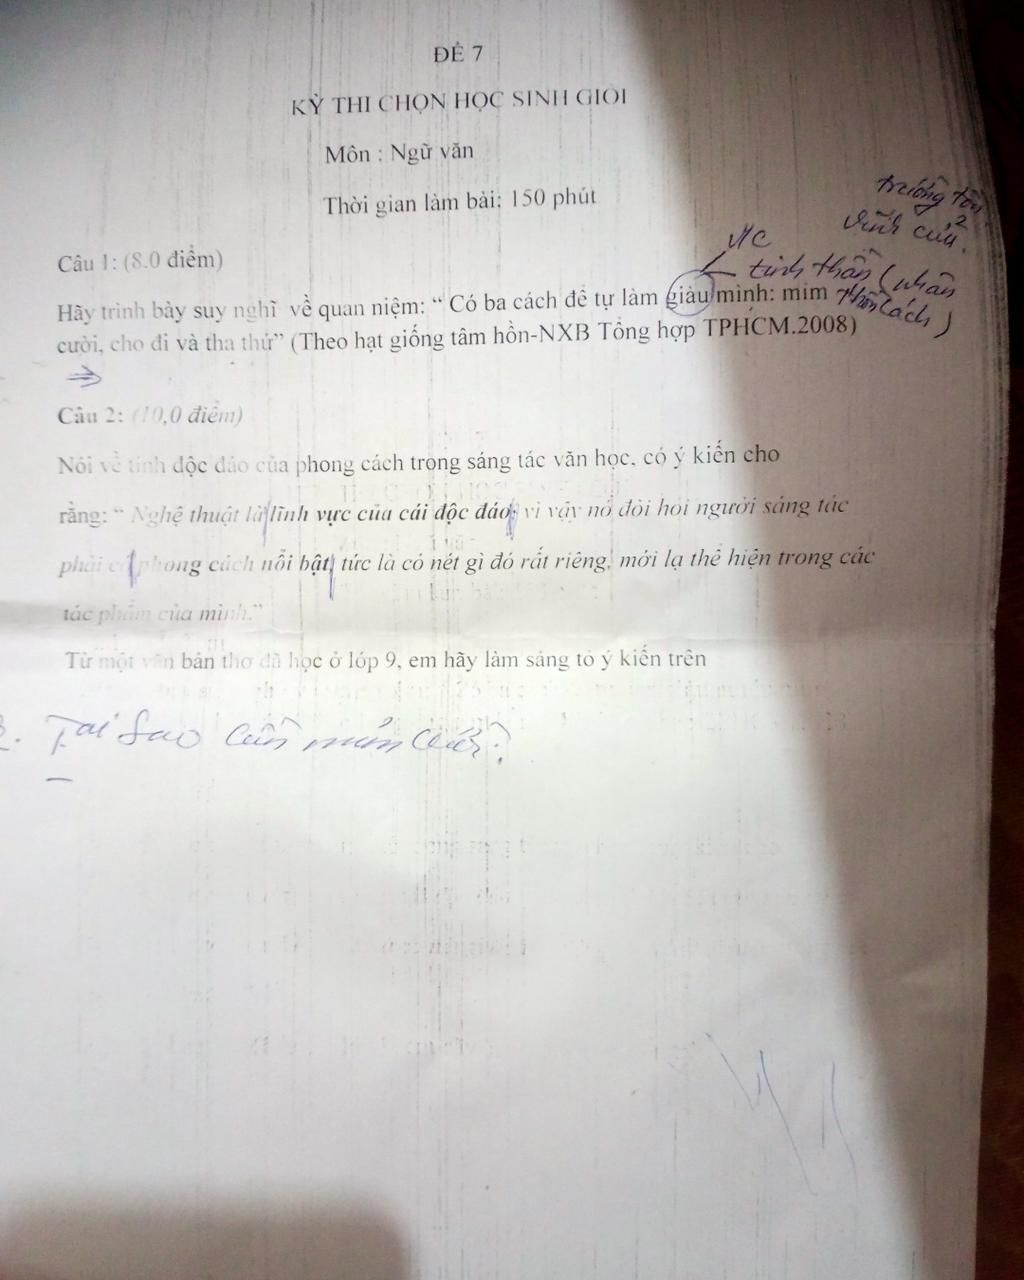 ĐỀ 7
KỲ THI CHỌN HỌC SINH GIỎI
Môn : Ngữ văn
Thời gian làm bài: 150 phút
trường tồn
vĩnh cửu.
VC
tinh thần (nhân
cách)
Câu 1: (8.0 điểm)
Hãy trình bày suy nghĩ về quan niệm: “ Có ba cách để tự làm giàu mình: mỉm
cười, cho đi và tha thứ” (Theo hạt giống tâm hồn-NXB Tổng hợp TPHCM.2008)
Câu 2: (10,0 điểm)
Nói về tính độc đáo của phong cách trong sáng tác văn học, có ý kiến cho
rằng: “ Nghệ thuật là lĩnh vực của cái độc đáo, vì vậy nó đòi hỏi người sáng tác
phải có phong cách nổi bật, tức là có nét gì đó rất riêng, mới lạ thể hiện trong các
tác phẩm của mình.”
Từ một văn bản thơ đã học ở lớp 9, em hãy làm sáng tỏ ý kiến trên
2. Tại sao cần mỉm cười?